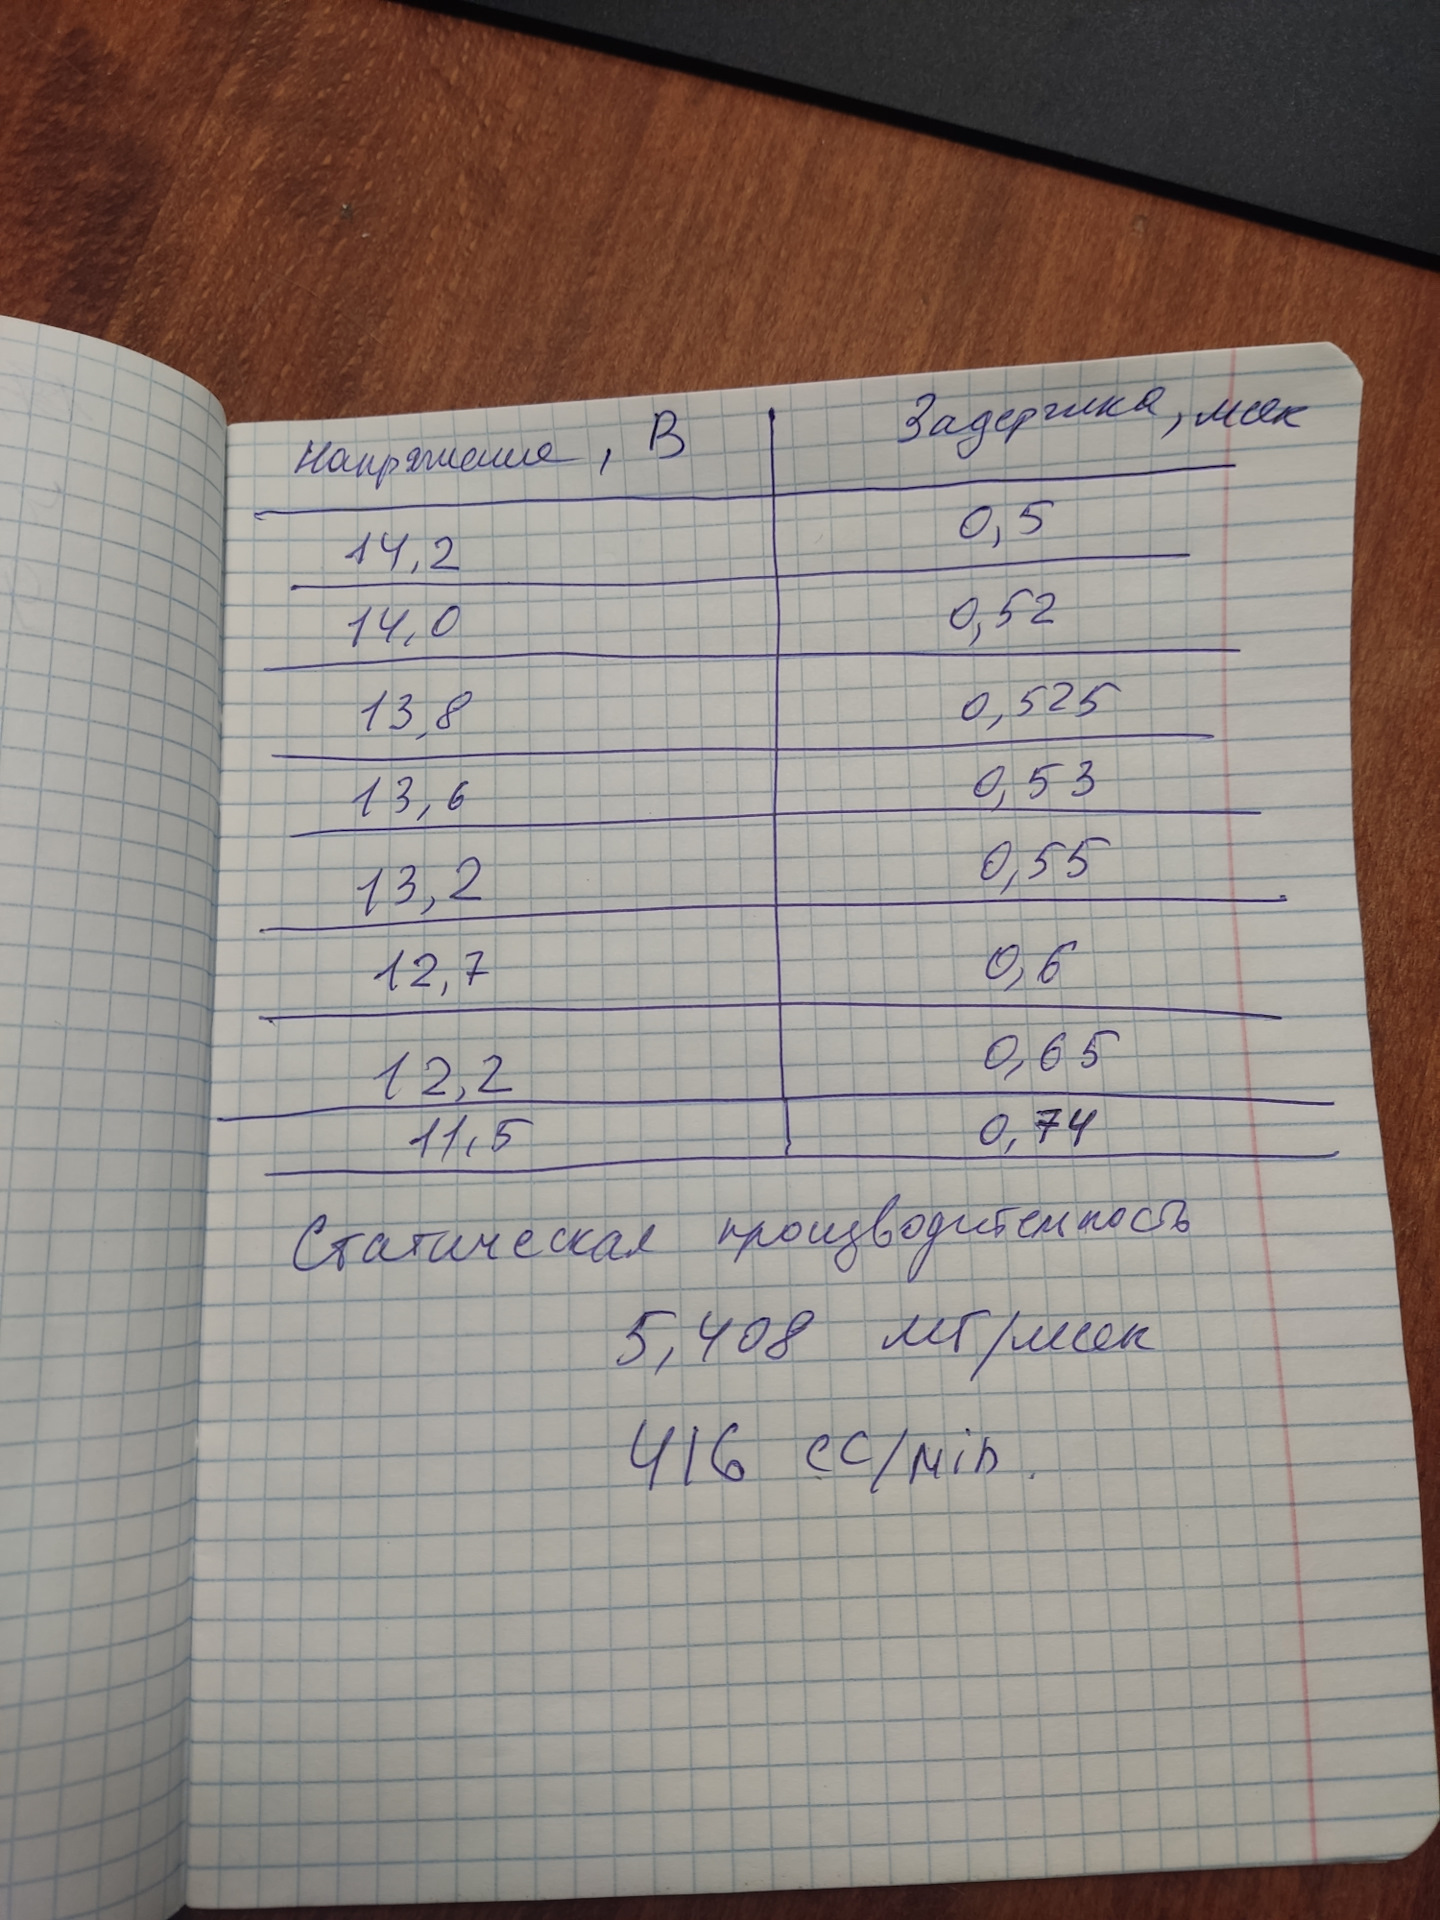 Напряжение, В Задержка, мсек
14,2 0,5
14,0 0,52
13,8 0,525
13,6 0,53
13,2 0,55
12,7 0,6
12,2 0,65
11,5 0,74
Статическая производительность
5,408 мг/мсек
416 cc/min.